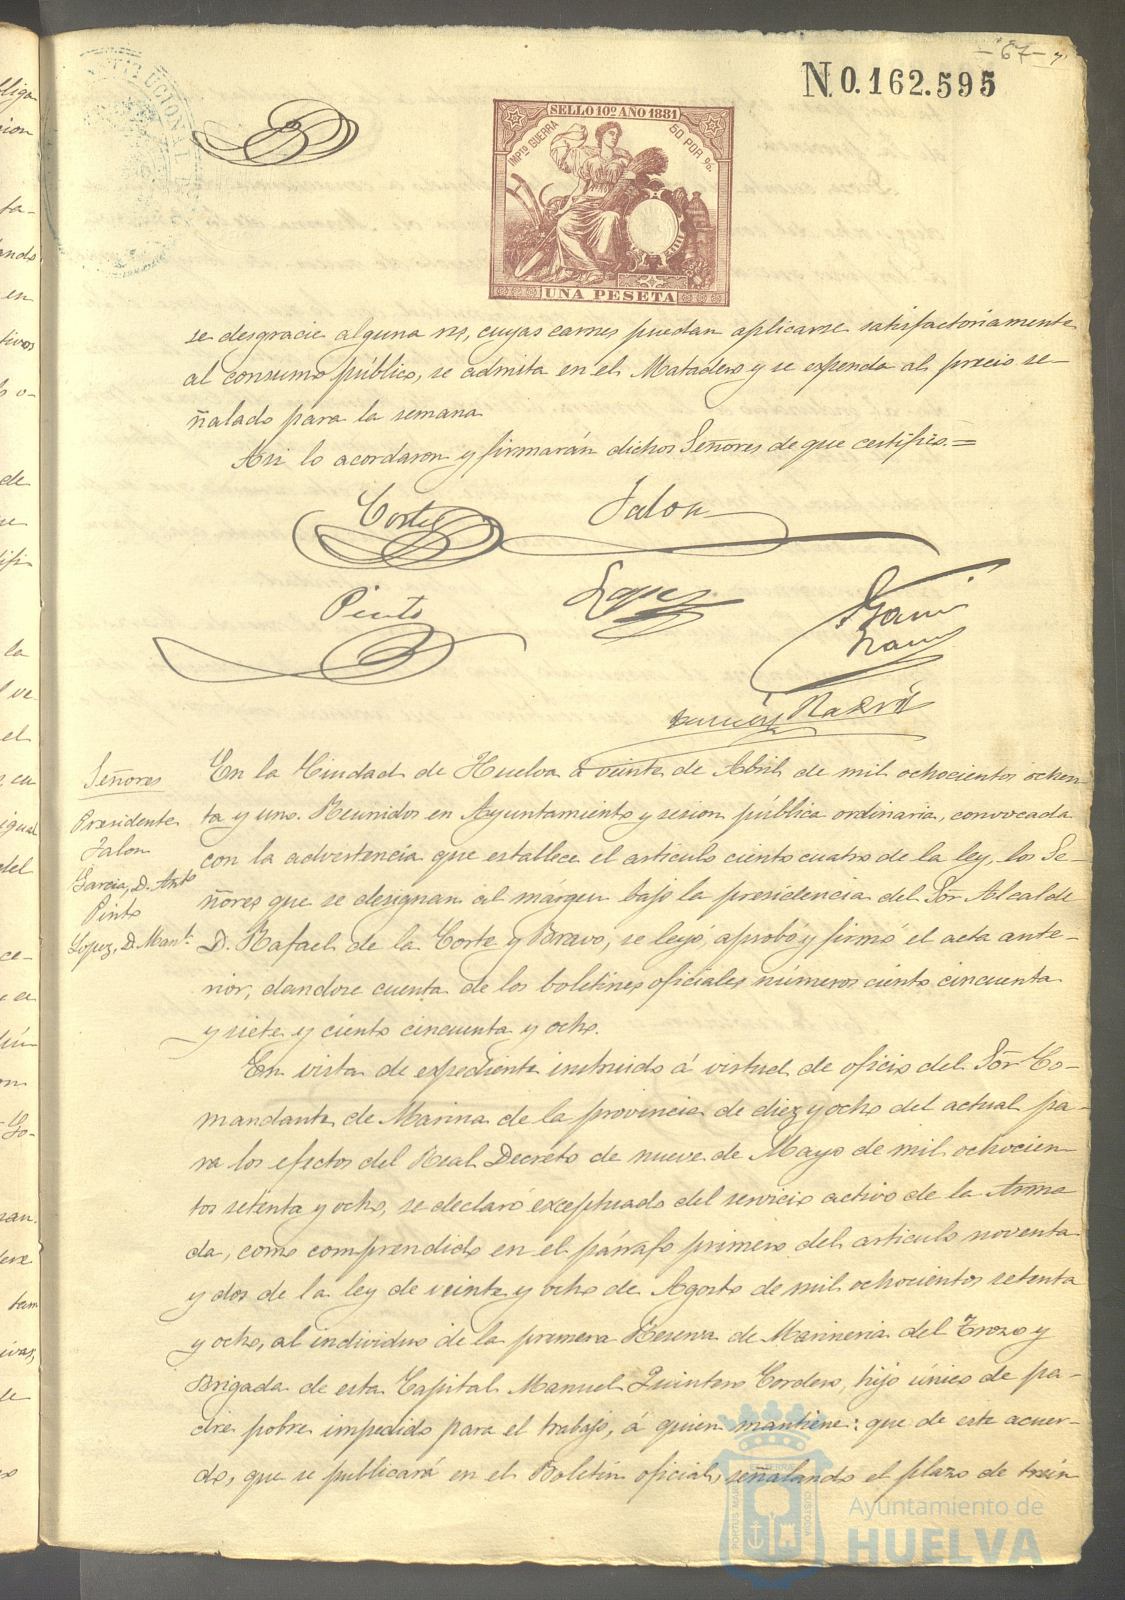 -67-
N 0.162.595
SELLO 10º AÑO 1881
IMPTO GUERRA 50 POR %.
UNA PESETA
se desgracie alguna res, cuyas carnes puedan aplicarse satisfactoriamente
al consumo público, se admita en el Matadero y se expenda al precio se-
ñalado para la semana
Asi lo acordaron y firmarán dichos Señores de que certifico.=
Corte Jalon
Pinto Lopez
Señores
Presidente
Jalon
Garcia, D. Antº
Pinto
Lopez, D. Manl.
En la Ciudad de Huelva á veinte de Abril de mil ochocientos ochen
ta y uno. Reunidos en Ayuntamiento y sesion pública ordinaria, convocada
con la advertencia que establece el articulo ciento cuatro de la ley, los Se-
ñores que se designan al márgen bajo la presidencia del Sor Alcalde
D. Rafael de la Corte y Bravo, se leyó, aprobó y firmó el acta ante-
rior, dandose cuenta de los boletines oficiales números ciento cincuenta
y siete y ciento cincuenta y ocho.
En vista de expediente instruido á virtud de oficio del Sor Co-
mandante de Marina de la provincia de diez y ocho del actual pa-
ra los efectos del Real Decreto de nueve de Mayo de mil ochocien
tos setenta y ocho, se declaró exceptuado del servicio activo de la Arma
da, como comprendido en el párrafo primero del articulo noventa
y dos de la ley de veinte y ocho de Agosto de mil ochocientos setenta
y ocho, al individuo de la primera Reserva de Marineria del Trozo y
Brigada de esta Capital Manuel Quintero Cordero, hijo único de pa-
dre pobre impedido para el trabajo, á quien mantiene: que de este acuer-
do, que se publicará en el Boletin oficial, señalando el plazo de trein
Ayuntamiento de
HUELVA